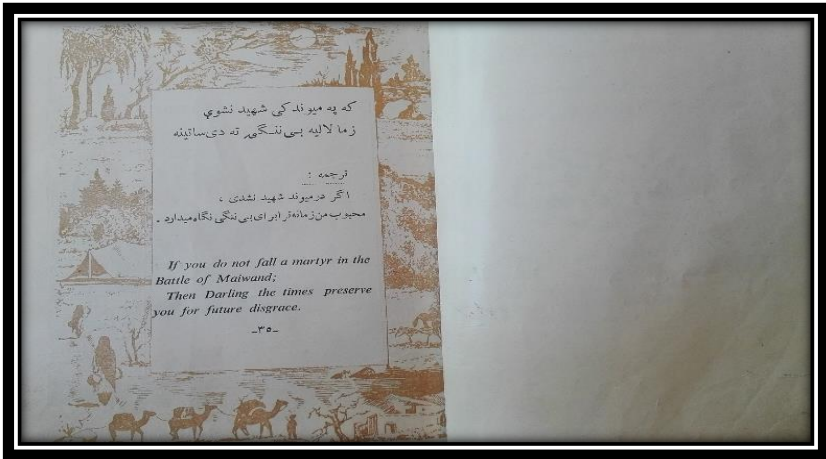 که په میوند کی شهید نشوې
زما لالیه بی ننګۍ ته دی ساتینه
ترجمه :
اگر در میوند شهید نشدی ،
محبوب من زمانه ترا برای بی ننگی نگاه میدارد .
If you do not fall a martyr in the
Battle of Maiwand;
Then Darling the times preserve
you for future disgrace.
-۳۵-